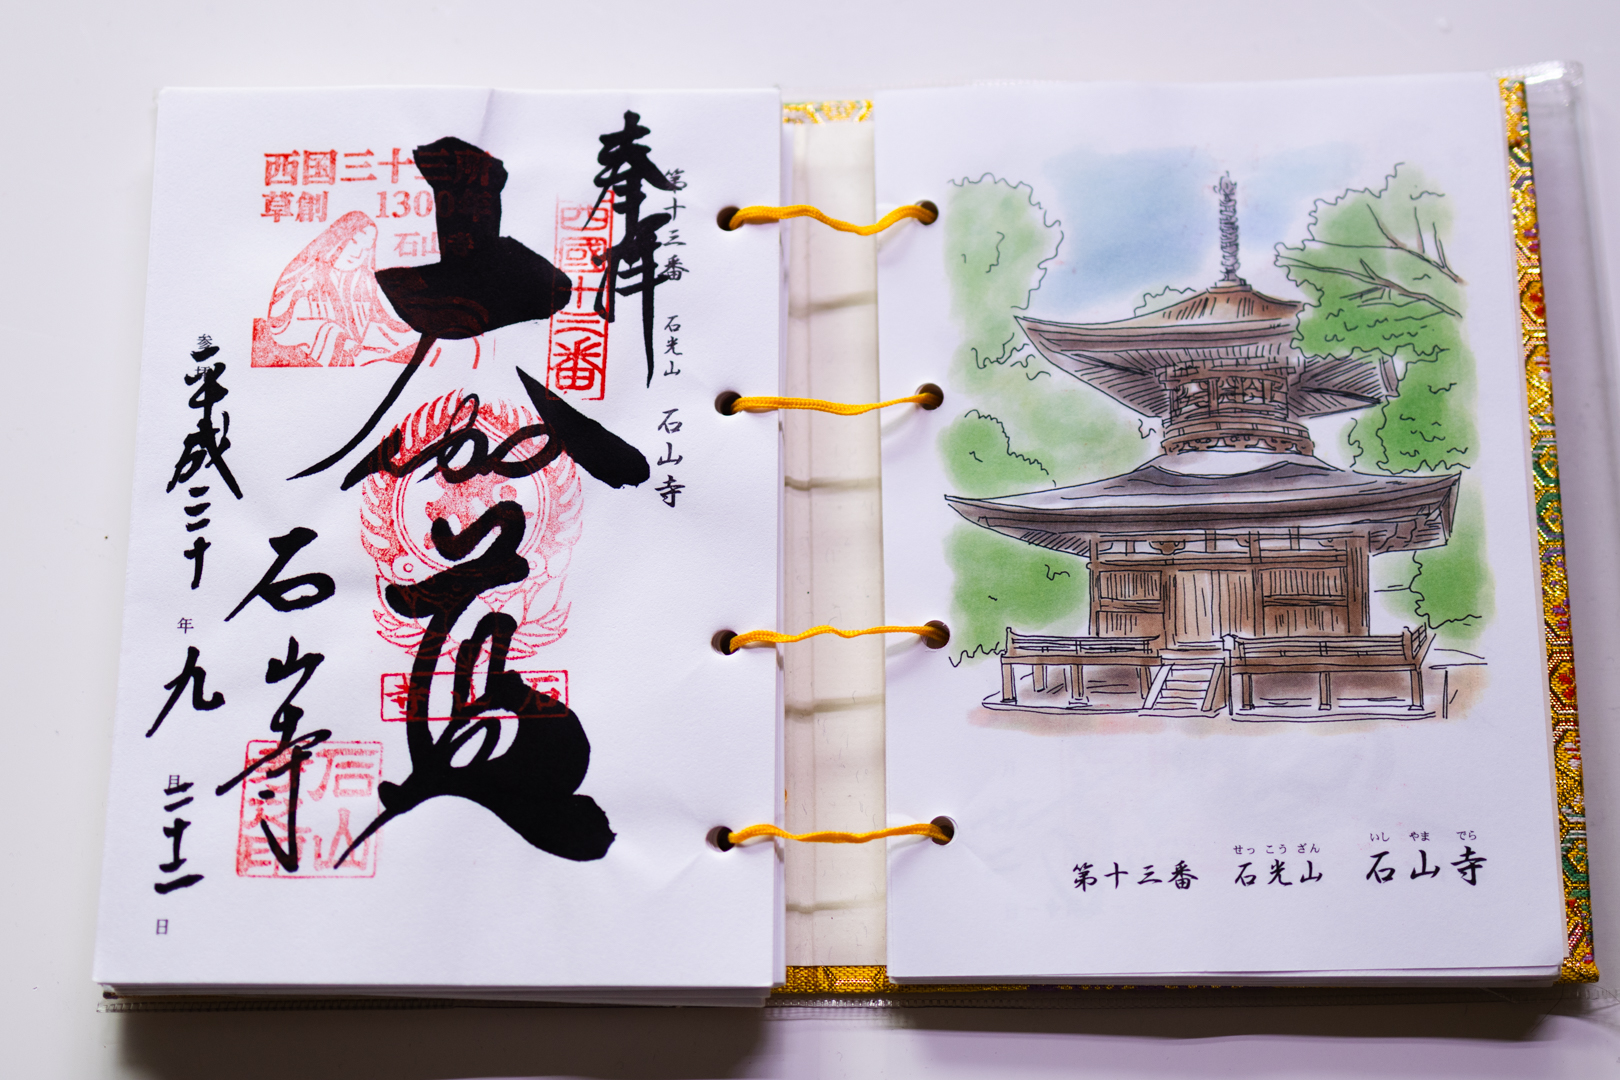 第十三番 石光山 石山寺
奉拝
西國十三番
西国三十三所
草創1300年
石山寺
大伽藍
石山寺
石山寺
平成三十年九月二十二日
いし やま でら
せっ こう ざん
第十三番 石光山 石山寺